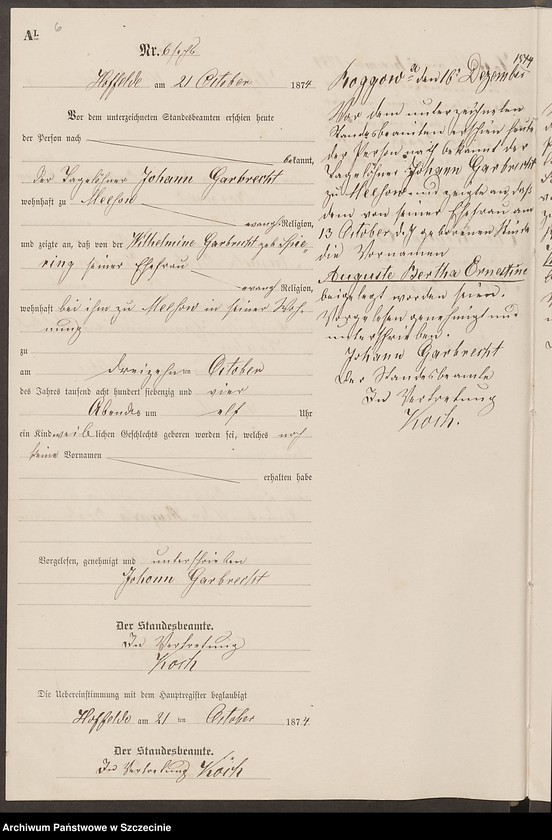 6
A1.
Nr. 6 sechs
Hoffelde am 21 October 1874
Vor dem unterzeichneten Standesbeamten erschien heute
der Person nach
bekannt,
der Tagelöhner Johann Garbrecht
wohnhaft zu Meesow
evangl. Religion,
und zeigte an, daß von der Wilhelmine Garbrecht geb. Spie-
ring seiner Ehefrau
evangl. Religion,
wohnhaft bei ihm zu Meesow in seiner Woh-
nung
zu
am dreizehn October
des Jahres tausend acht hundert siebenzig und vier
Abends um elf Uhr
ein Kind weiblichen Geschlechts geboren worden sei, welches noch
keine Vornamen
erhalten habe
Vorgelesen, genehmigt und unterschrieben
Johann Garbrecht
Der Standesbeamte.
In Vertretung
Koch
Die Uebereinstimmung mit dem Hauptregister beglaubigt
Hoffelde am 21 ten October 1874
Der Standesbeamte.
In Vertretung Koch
Roggow a den 16 Dezember 1874
Vor dem unterzeichneten
Standesbeamten erschien heute
der Person nach bekannt der
Tagelöhner Johann Garbrecht
zu Meesow und zeigte an, daß
dem von seiner Ehefrau am
13 October d. J. geborenen Kinde
die Vornamen
Auguste Bertha Ernestine
beigelegt worden seien.
Vorgelesen genehmigt und
unterschrieben.
Johann Garbrecht
Der Standesbeamte
In Vertretung
Koch.
Archiwum Państwowe w Szczecinie